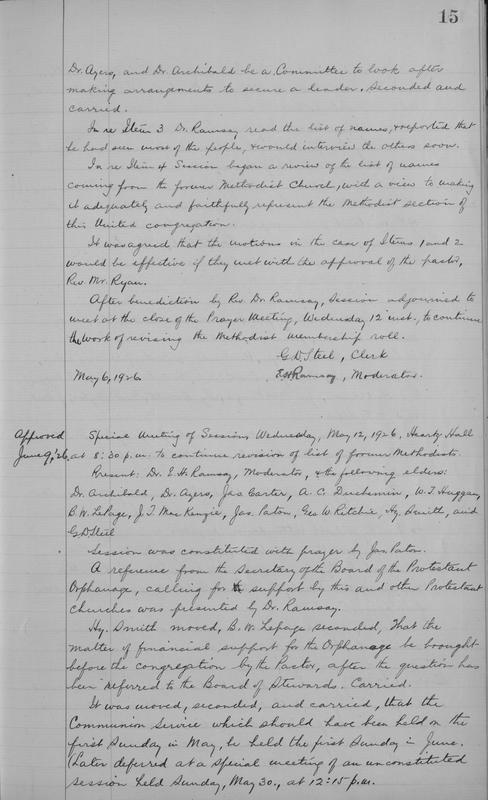 15
Dr. Ayers, and Dr. Archibald be a Committee to look after
making arrangements to secure a leader. Seconded and
carried.
In re Item 3 Dr. Ramsay read the list of names, & reported that
he had seen most of the people, & would interview the others soon.
In re Item 4 Session began a review of the list of names
coming from the former Methodist Church, with a view to making
it adequately and faithfully represent the Methodist section of
this United congregation.
It was agreed that the motions in the case of Items 1 and 2
would be effective if they met with the approval of the pastor,
Rev. Mr. Ryan.
After benediction by Rev. Dr. Ramsay, Session adjourned to
meet at the close of the Prayer Meeting, Wednesday 12 inst., to continue
the work of revising the Methodist membership roll.
G.D. Steel, Clerk
May 6, 1926. E.H. Ramsay, Moderator.
Approved Special Meeting of Session, Wednesday, May 12, 1926, Heartz Hall
June 9, '26. at 8:30 p.m. to continue revision of list of former Methodists.
Present: Dr. E.H. Ramsay, Moderator, & the following elders:
Dr. Archibald, Dr. Ayers, Jas Carter, A.C. Duchemin, W.T. Huggan,
B.W. LePage, J.T. MacKenzie, Jas. Paton, Geo W. Ritchie, Hy. Smith, and
G.D. Steel
Session was constituted with prayer by Jas. Paton.
A reference from the Secretary of the Board of the Protestant
Orphanage, calling for support by this and other Protestant
Churches was presented by Dr. Ramsay.
Hy. Smith moved, B.W. LePage seconded, That the
matter of financial support for the Orphanage be brought
before the congregation by the Pastor, after the question has
been referred to the Board of Stewards. Carried.
It was moved, seconded, and carried, that the
Communion Service which should have been held on the
first Sunday in May, be held the first Sunday in June.
(Later deferred at a special meeting of an unconstituted
session held Sunday, May 30., at 12:15 p.m.